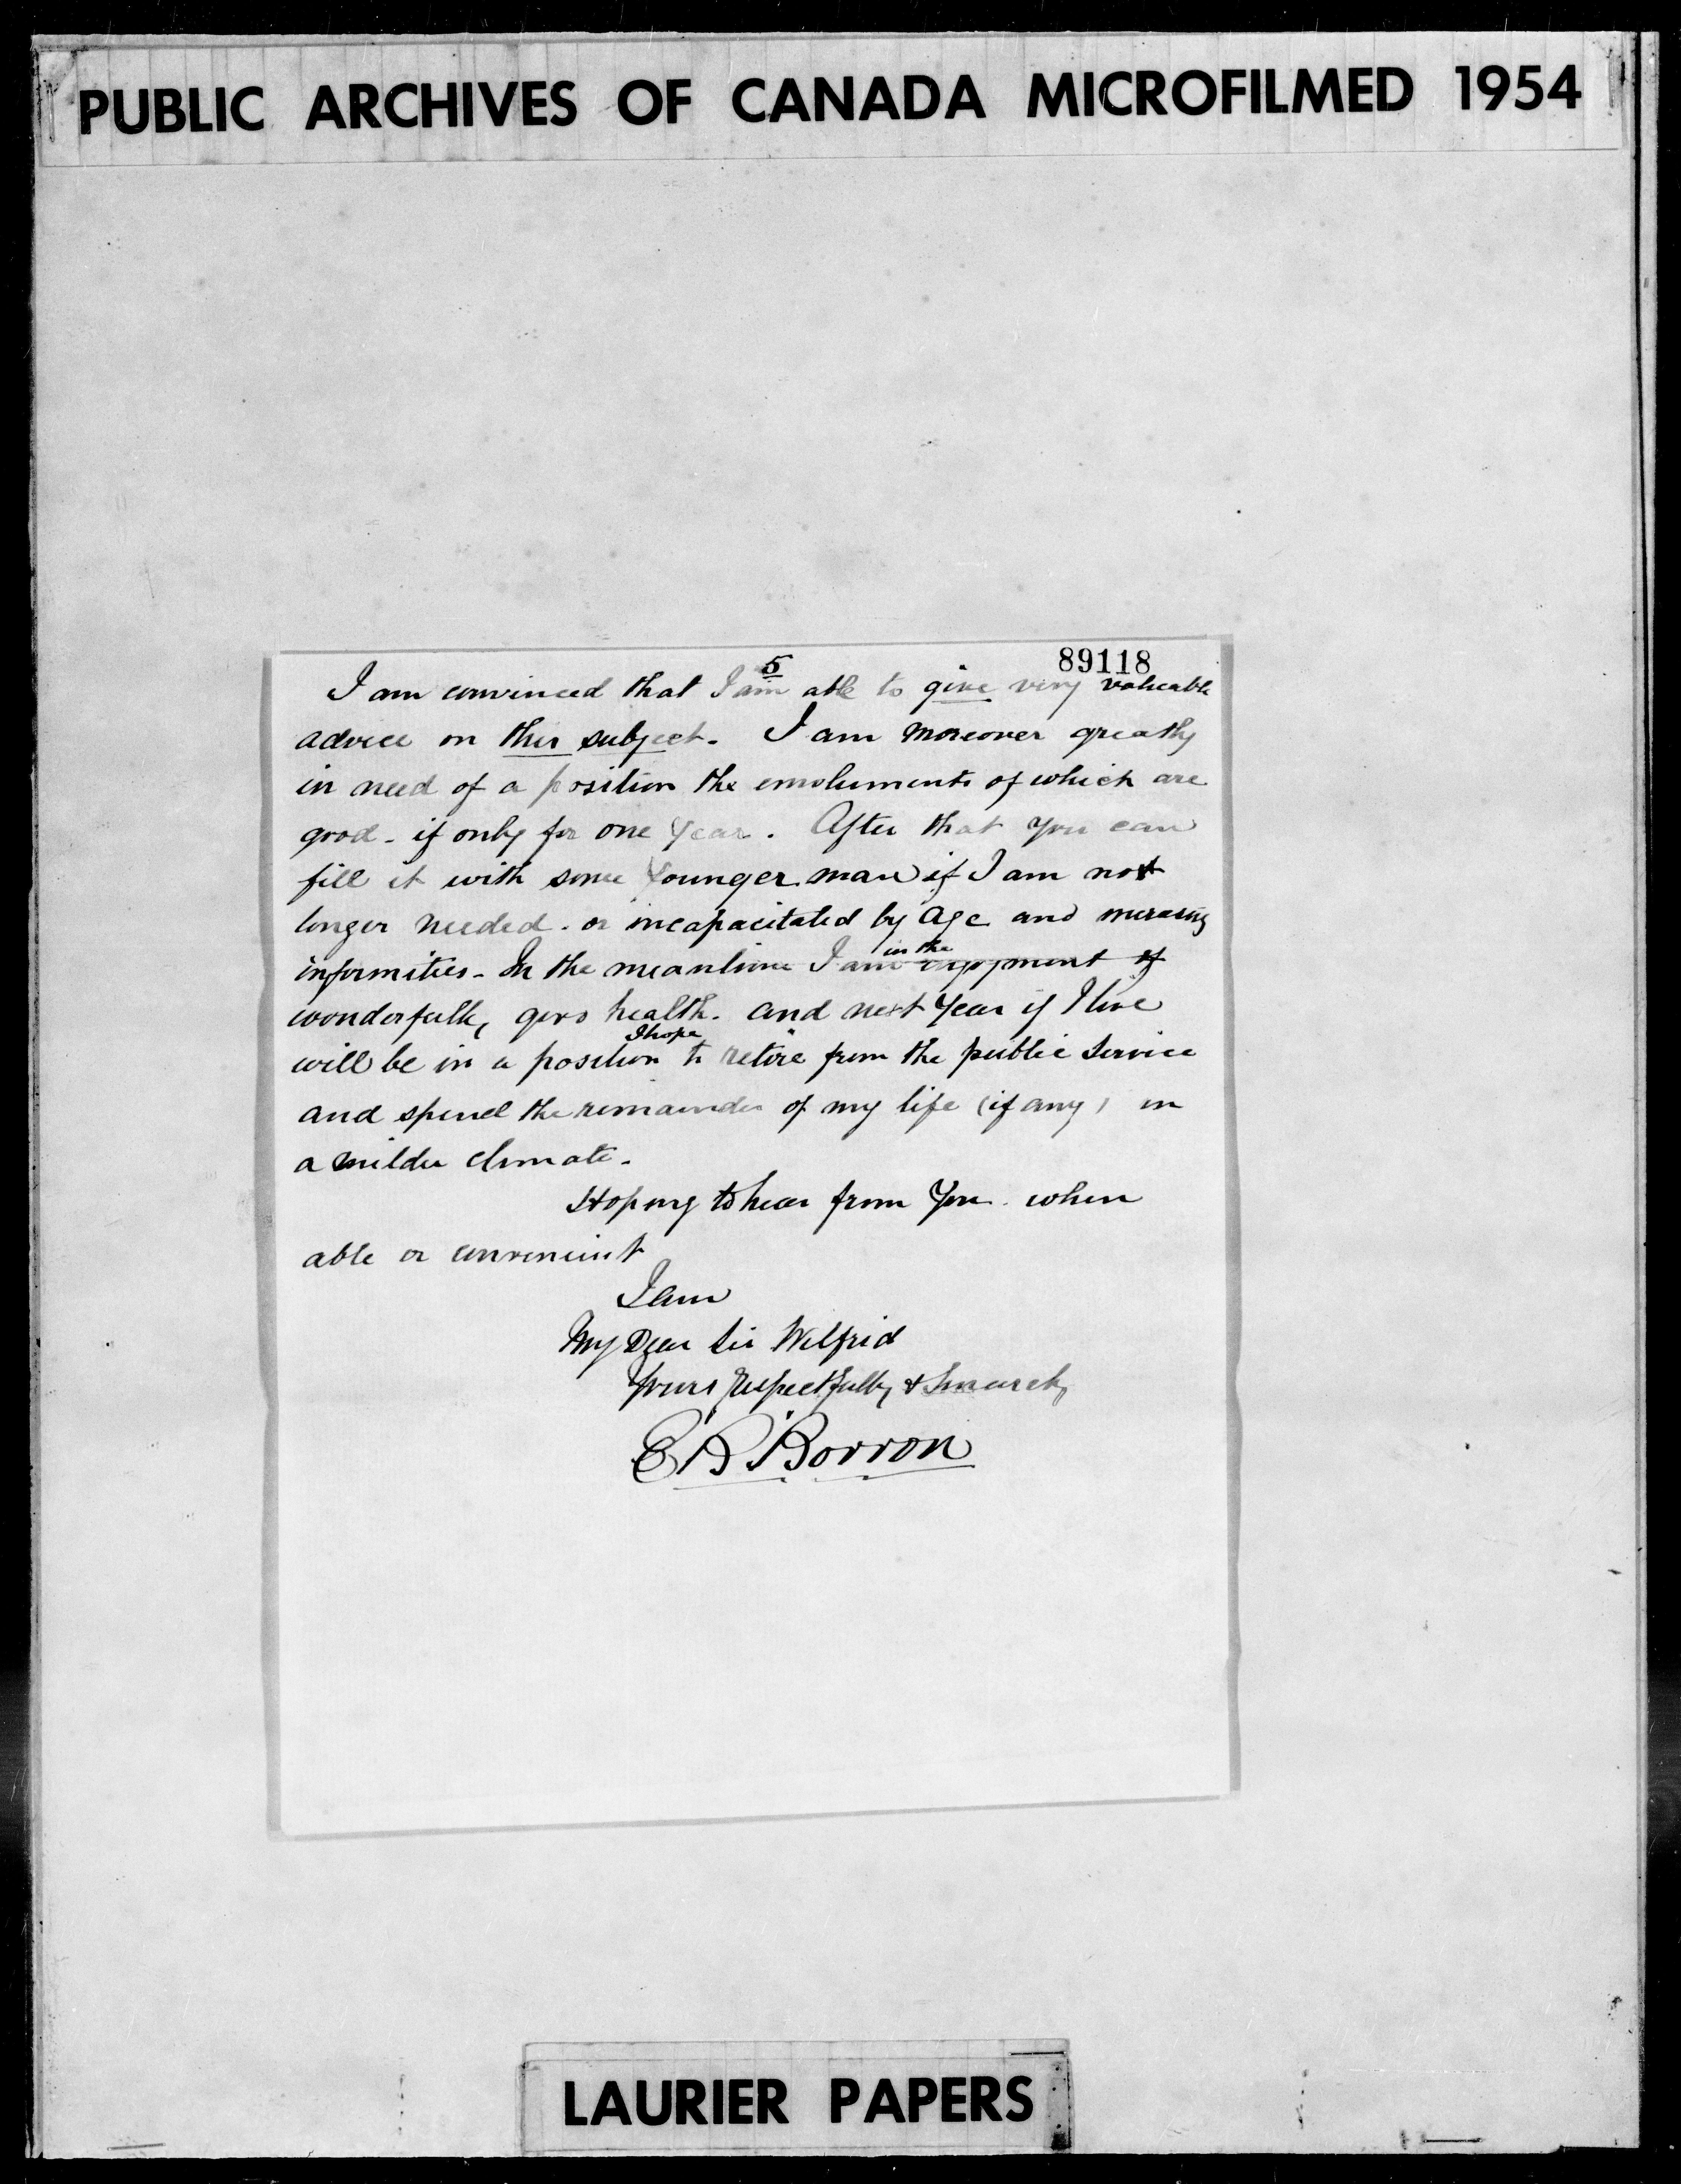 PUBLIC ARCHIVES OF CANADA MICROFILMED 1954
5
89118
I am convinced that I am able to give very valuable
advice on this subject. I am moreover greatly
in need of a position the emoluments of which are
good - if only for one year. After that you can
fill it with some younger man if I am not
longer needed. or incapacitated by age and increasing
infirmities - In the meantime I am in the enjoyment of
wonderfully good health. and next year if I live
will be in a position I hope to retire from the public service
and spend the remainder of my life (if any) in
a milder climate.
Hoping to hear from you when
able or convenient
I am
My Dear Sir Wilfrid
Yours respectfully & Sincerely
E B Borron
LAURIER PAPERS